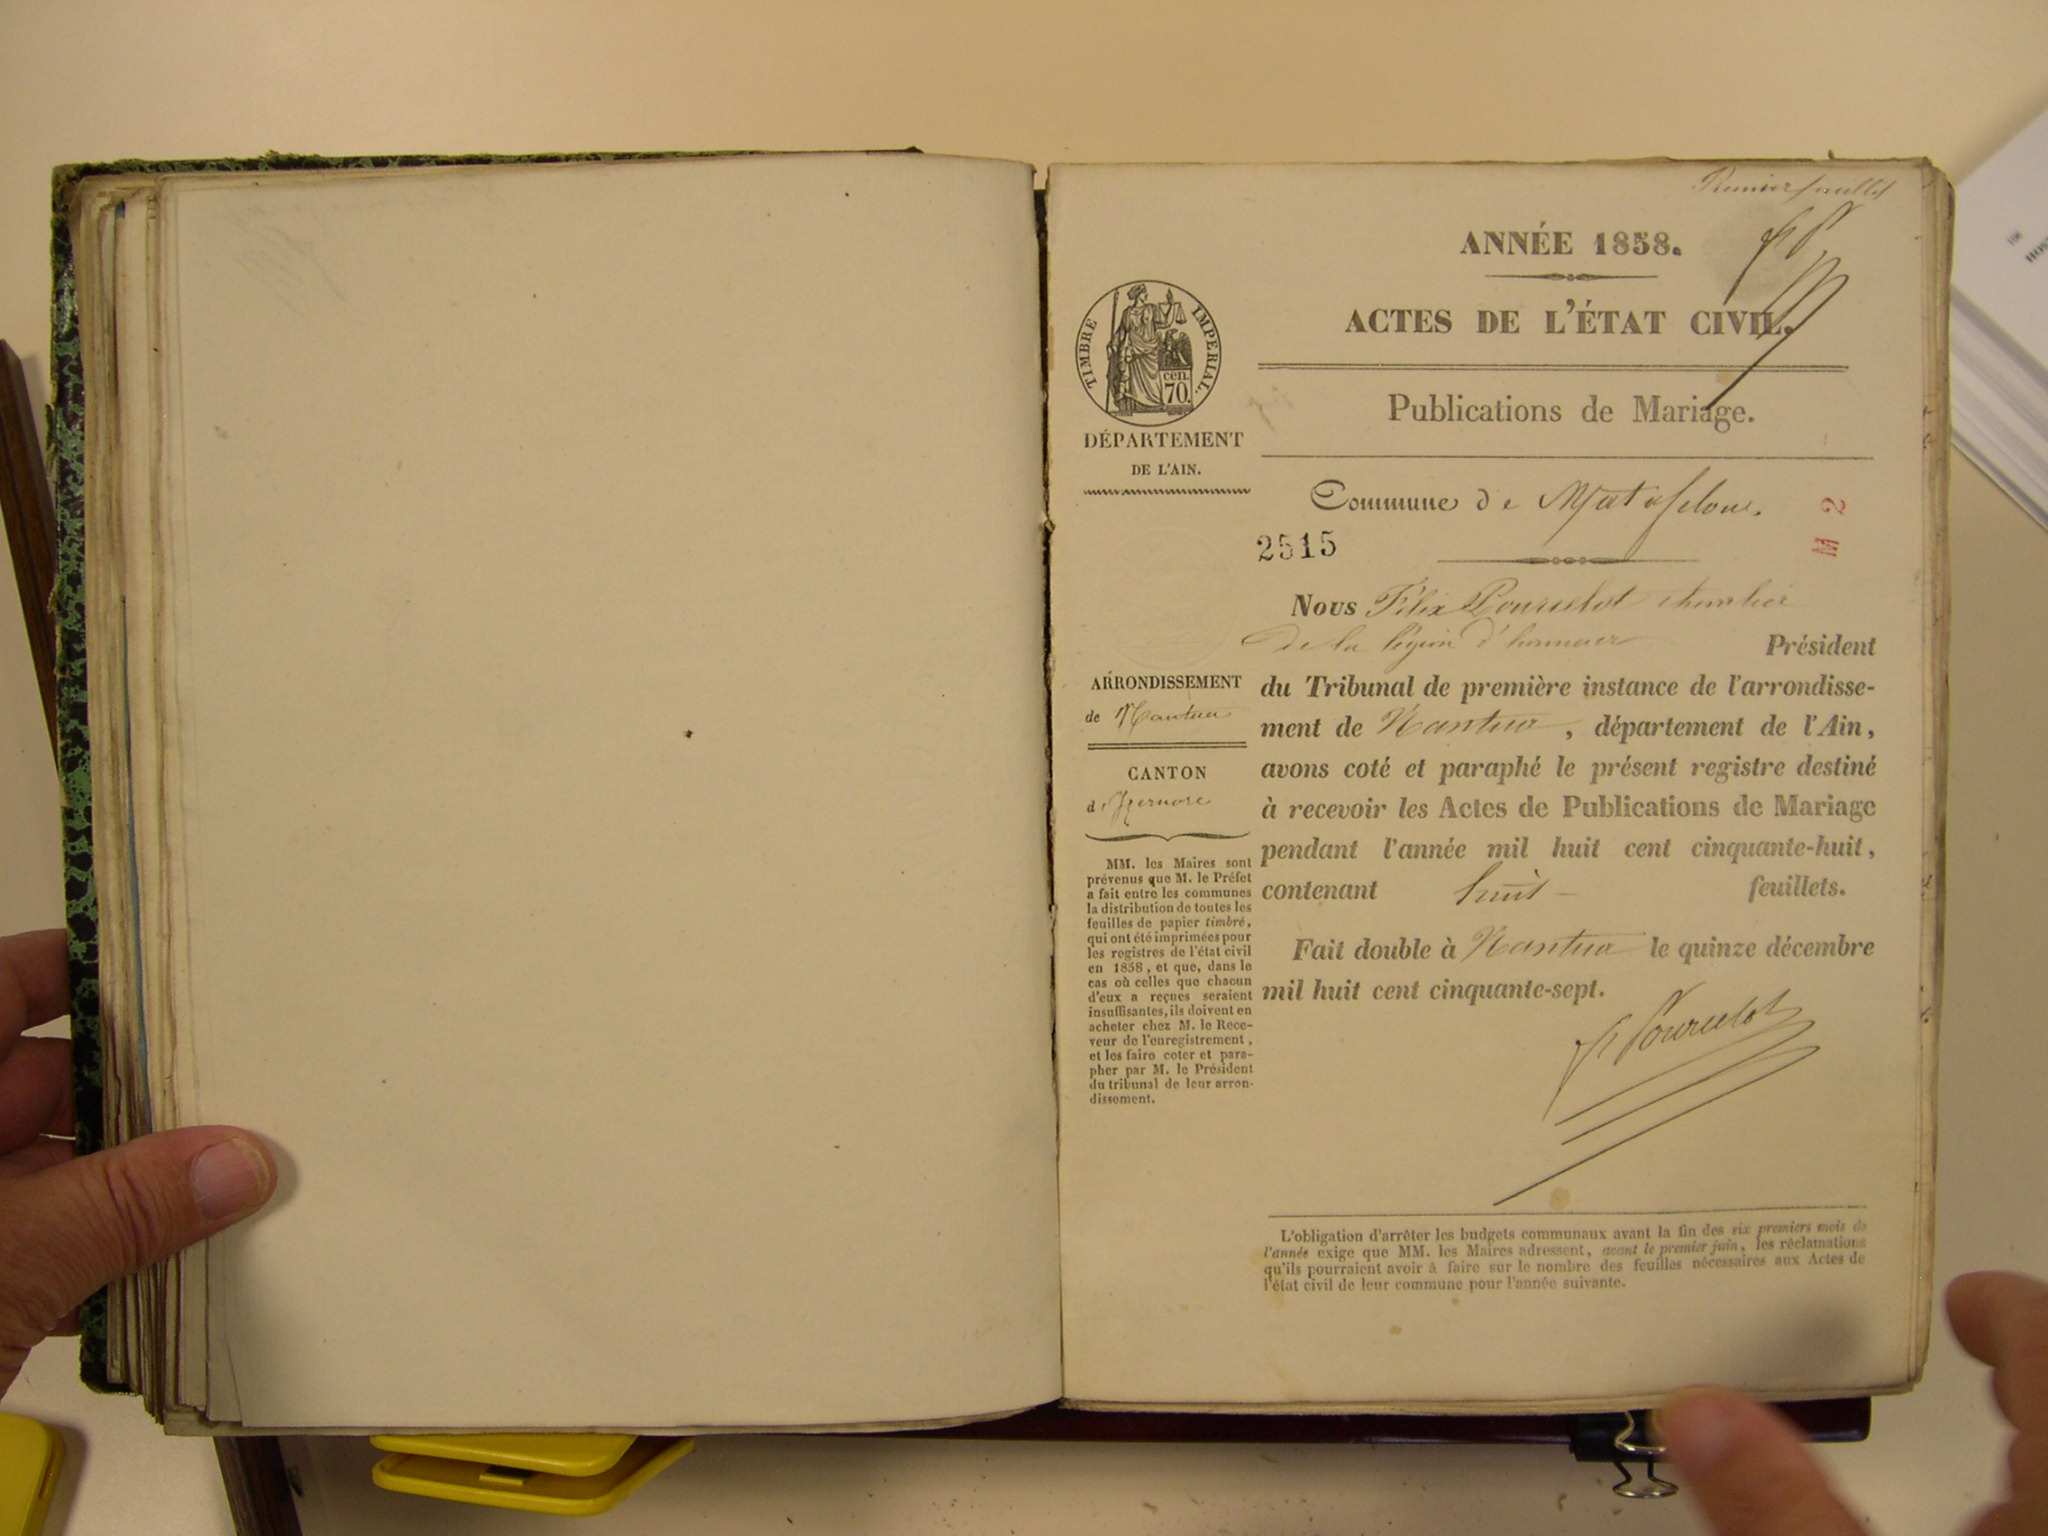 Premier feuillet
ANNÉE 1858.
ACTES DE L'ÉTAT CIVIL.
Publications de Mariage.
TIMBRE IMPERIAL.
cen.
70.
DÉPARTEMENT
DE L'AIN.
Commune de Matafelon.
M 2
2515
Nous Félix Pourcelot chevalier
de la légion d'honneur Président
du Tribunal de première instance de l'arrondisse-
ment de Nantua, département de l'Ain,
avons coté et paraphé le présent registre destiné
à recevoir les Actes de Publications de Mariage
pendant l'année mil huit cent cinquante-huit,
contenant huit feuillets.
Fait double à Nantua le quinze décembre
mil huit cent cinquante-sept.
F Pourcelot
ARRONDISSEMENT
de Nantua
CANTON
d'Izernore
MM. les Maires sont
prévenus que M. le Préfet
a fait entre les communes
la distribution de toutes les
feuilles de papier timbré,
qui ont été imprimées pour
les registres de l'état civil
en 1858, et que, dans le
cas où celles que chacun
d'eux a reçues seraient
insuffisantes, ils doivent en
acheter chez M. le Rece-
veur de l'enregistrement,
et les faire coter et para-
pher par M. le Président
du tribunal de leur arron-
dissement.
L'obligation d'arrêter les budgets communaux avant la fin des six premiers mois de
l'année exige que MM. les Maires adressent, avant le premier juin, les réclamations
qu'ils pourraient avoir à faire sur le nombre des feuilles nécessaires aux Actes de
l'état civil de leur commune pour l'année suivante.